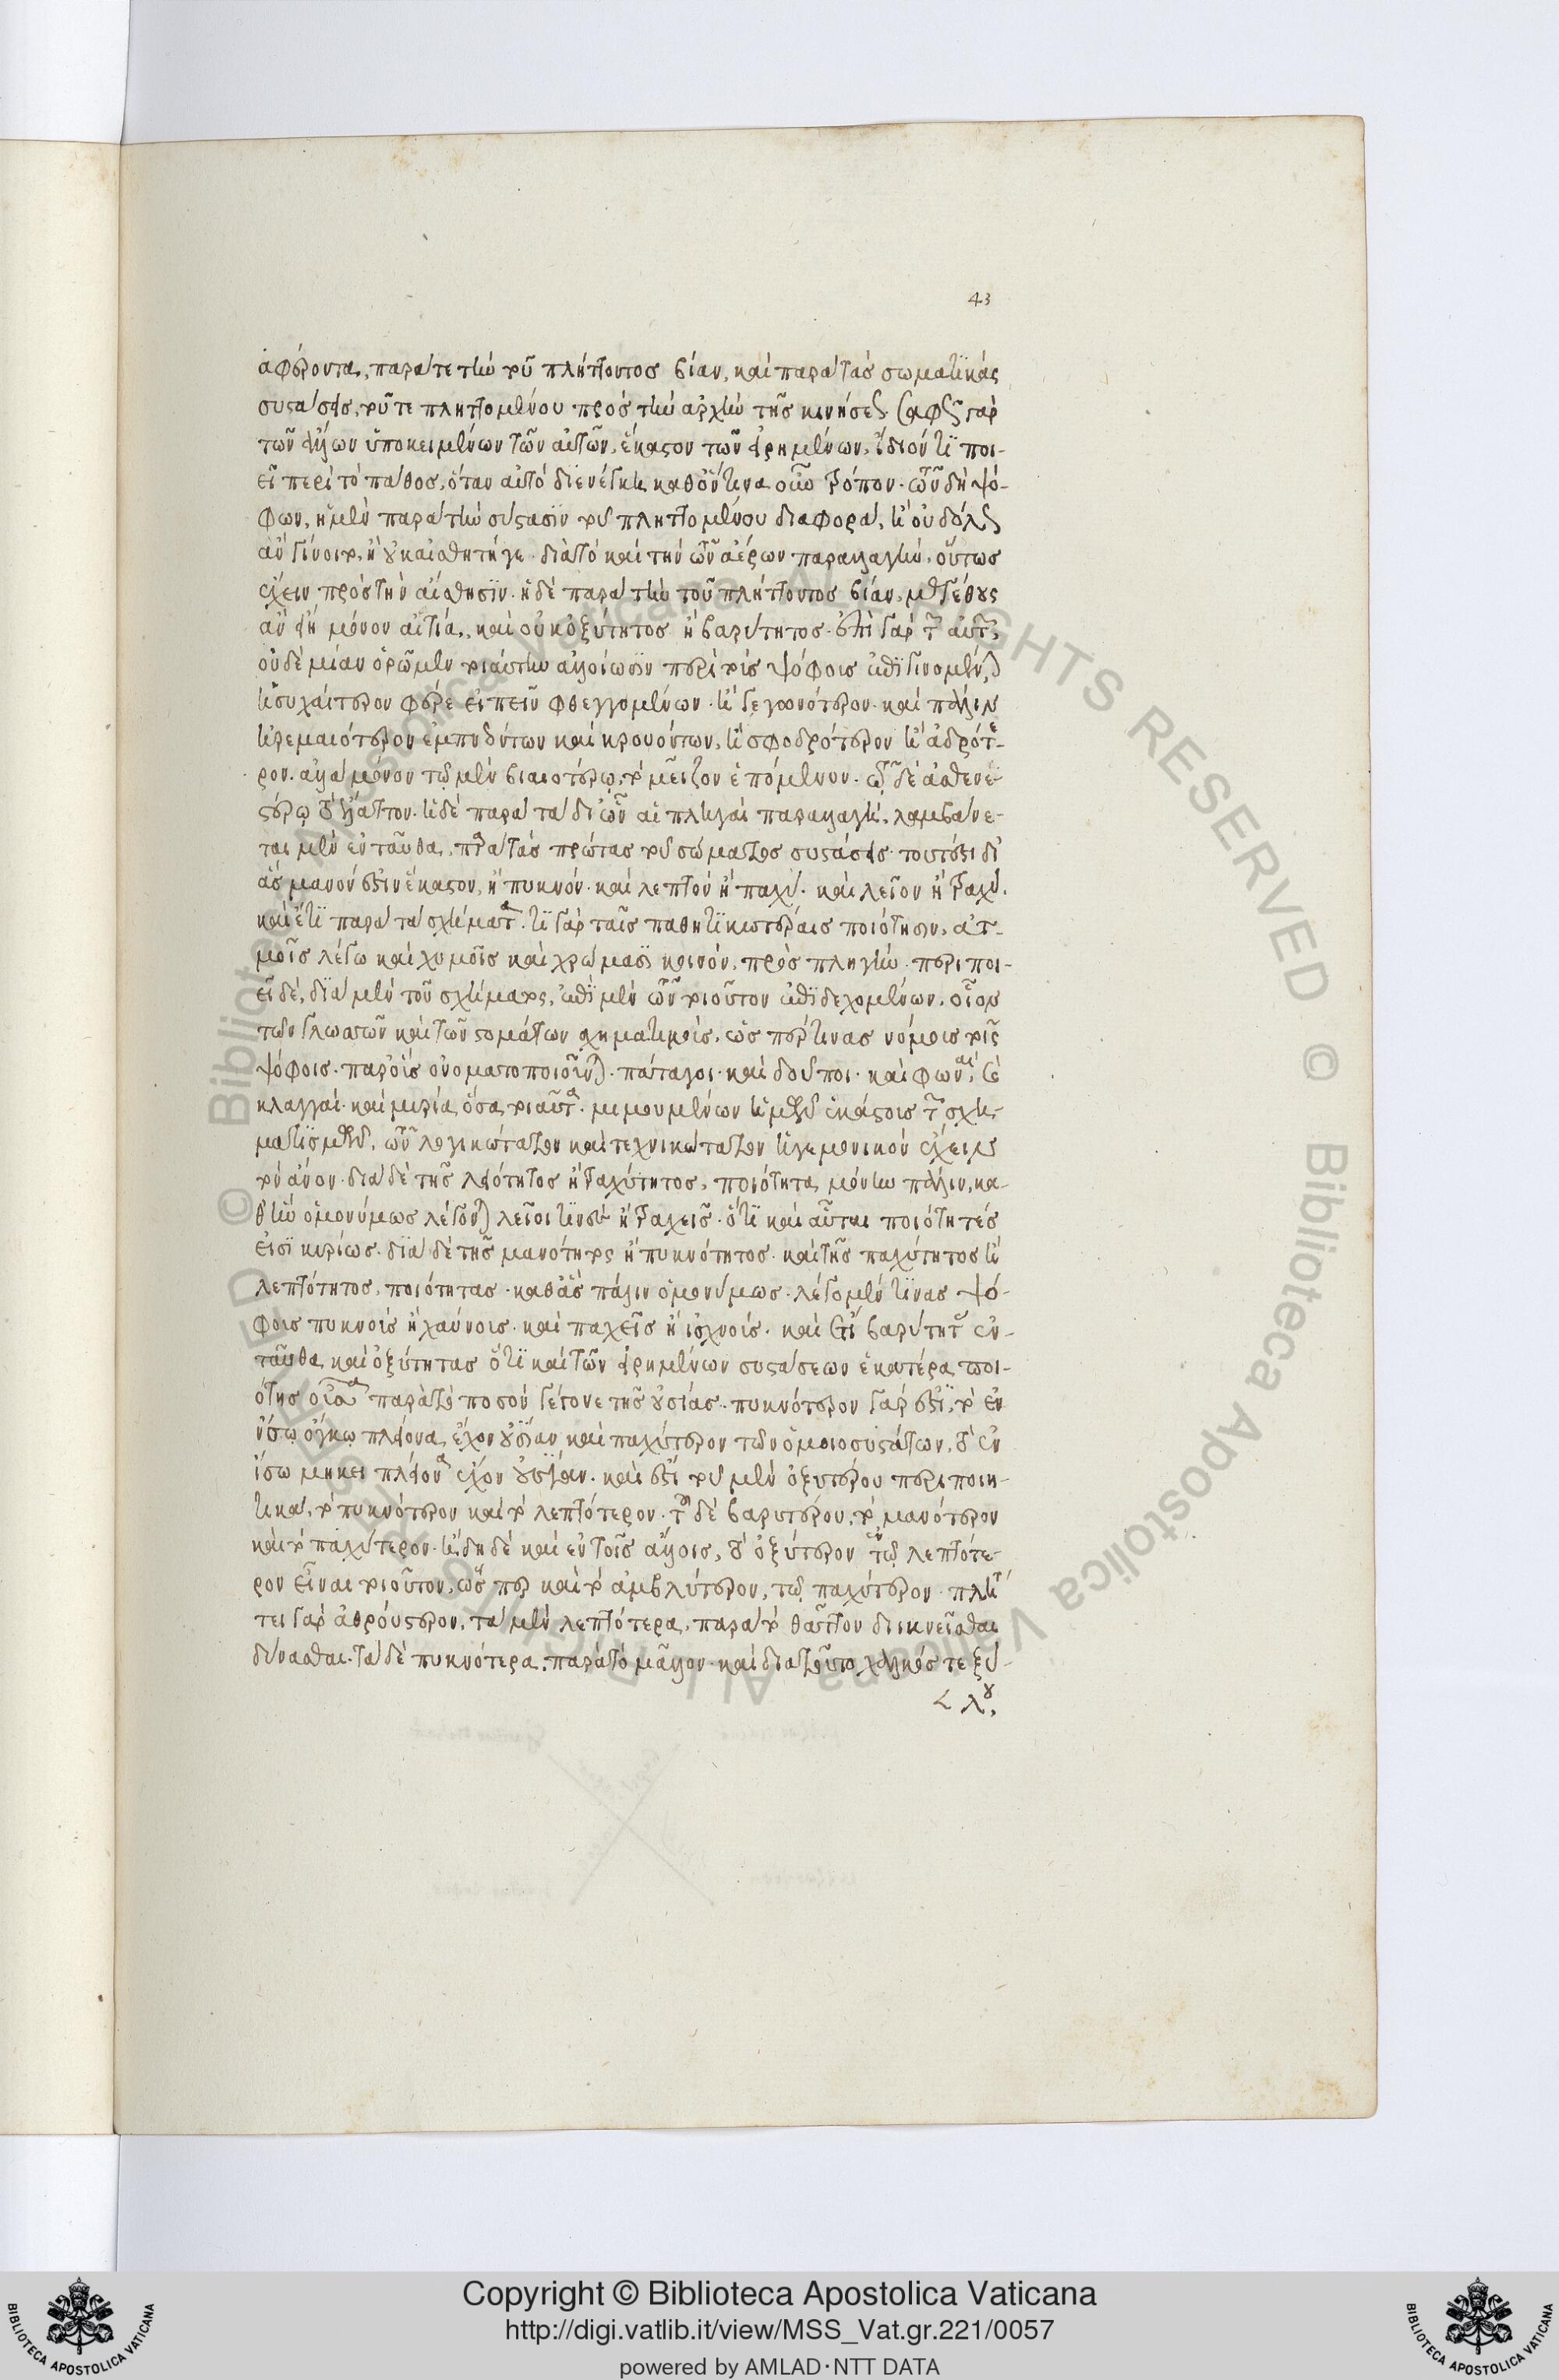 43
αφέροντα, παρά τε τὴν τοῦ πλήττοντος βίαν, καὶ παρὰ τὰς σωματικὰς
συστάσεις, τοῦτε πληττομένου πρὸς τὴν ἀρχὴν τῆς κινήσεως. σαφῶς γὰρ
τῶν ἄλλων ὑποκειμένων τῶν αὐτῶν, ἕκαστον τῶν εἰρημένων, ἴδιόν τι ποι-
εῖ περὶ τὸ πάθος, ὅταν αὐτὸ διενέγκῃ καθ' ὅντινα οὖν τρόπον. τῶν δὴ ψό-
φων, ἡ μὲν παρὰ τὴν σύστασιν τοῦ πληττομένου διαφορά, ἢ οὐδόλως
ἂν γίνοιτο, ἢ οὐκ αἰσθητή γε. διὰ τὸ καὶ τὴν τῶν ἀέρων παραλλαγὴν, οὕτως
ἔχειν πρὸς τὴν αἴσθησιν. ἡ δὲ παρὰ τὴν τοῦ πλήττοντος βίαν, μεγέθους
ἂν εἴη μόνον αἰτία, καὶ οὐκ ὀξύτητος ἢ βαρύτητος. ἐπὶ γὰρ τῶν αὐτῶν,
οὐδὲ μίαν ὁρῶμεν τοιαύτην ἀλλοίωσιν περὶ τοὺς ψόφους ἐπιγινομένην,
ἡσυχαίτερον φέρε εἰπεῖν φθεγγομένων. ἢ γεγωνότερον. καὶ πάλιν
ἠρεμαιότερον ἐμπνεόντων καὶ κρουόντων, ἢ σφοδρότερον ἢ ἁδρότε-
ρον. ἀλλὰ μόνον τῷ μὲν βιαιοτέρῳ, τὸ μεῖζον ἑπόμενον. τῷ δὲ ἀσθενε-
στέρῳ τὸ ἔλαττον. ἡ δὲ παρὰ τὰ δι' ὧν αἱ πληγαὶ παραλλαγὴ, λαμβάνε-
ται μὲν ἐνταῦθα, παρὰ τὰς πρώτας τοῦ σώματος συστάσεις. τουτέστι δι'
ἃς μανόν ἐστιν ἕκαστον, ἢ πυκνόν. καὶ λεπτὸν ἢ παχύ. καὶ λεῖον ἢ τραχύ.
καὶ ἔτι παρὰ τὰ σχήματα. τί γὰρ ταῖς παθητικωτέραις ποιότησιν, ἀτ-
μοῖς λέγω καὶ χυμοῖς καὶ χρώμασι κοινὸν, πρὸς πληγήν. περιποι-
εῖ δὲ, διὰ μὲν τοῦ σχήματος, ἐπὶ μὲν τῶν τοιοῦτον ἐπιδεχομένων. οἷον
τῶν γλωσσῶν καὶ τῶν στομάτων σχηματισμοὺς, ὥσπερ τινὰς νόμους τοῖς
ψόφοις. παρ' οἷς ὀνοματοποιοῦνται. πάταγοι. καὶ δοῦποι. καὶ φωναί. καὶ
κλαγγαί. καὶ μυρία ὅσα τοιαῦτα. μιμουμένων ἡμῶν ἑκάστους τῶν σχη-
ματισμῶν. τῶν λογικώτατον καὶ τεχνικώτατον ἡγεμονικὸν ἔχειν
τὸν ἄνον. διὰ δὲ τῆς λειότητος ἢ τραχύτητος, ποιότητα μόνην πάλιν, κα-
θ' ἣν ὁμονύμως λέγονται λεῖοι τινὲς ἢ τραχεῖς. ὅτι καὶ αὗται ποιότητές
εἰσι κυρίως. διὰ δὲ τῆς μανότητος ἢ πυκνότητος. καὶ τῆς παχύτητος ἢ
λεπτότητος, ποιότητας. καθ' ἃς πάλιν ὁμονύμως. λέγομέν τινας ψό-
φους πυκνοὺς ἢ χαύνους. καὶ παχεῖς ἢ ἰσχνούς. καὶ ἔτι βαρύτητας ἐν-
ταῦθα καὶ ὀξύτητας ὅτι καὶ τῶν εἰρημένων συστάσεων ἑκατέρα ποι-
ότης οὖσα παρὰ τὸ ποσὸν γέγονε τῆς οὐσίας. πυκνότερον γάρ ἐστι, τὸ ἐν
ἴσῳ ὄγκῳ πλείονα ἔχον οὐσίαν καὶ παχύτερον τῶν ὁμοιοσυστάτων, τὸ ἐν
ἴσῳ μήκει πλείονα ἔχον οὐσίαν. καὶ ἔστι τοῦ μὲν ὀξυτέρου περιποιη-
τικὰ, τὸ πυκνότερον καὶ τὸ λεπτότερον. τοῦ δὲ βαρυτέρου, τὸ μανότερον
καὶ τὸ παχύτερον. ἤδη δὲ καὶ ἐν τοῖς ἄλλοις, τὸ ὀξύτερον ἐν τῷ λεπτότε-
ρον εἶναι τοιοῦτον, ὥσπερ καὶ τὸ ἀμβλύτερον, τῷ παχύτερον. πλήτ-
τει γὰρ ἀθρούστερον, τὰ μὲν λεπτότερα, παρὰ τὸ θᾶττον διικνεῖσθαι
δύνασθαι. τὰ δὲ πυκνότερα, παρὰ τὸ μᾶλλον. καὶ διὰ τοῦτο χαλκός τε ξύ-
λου,